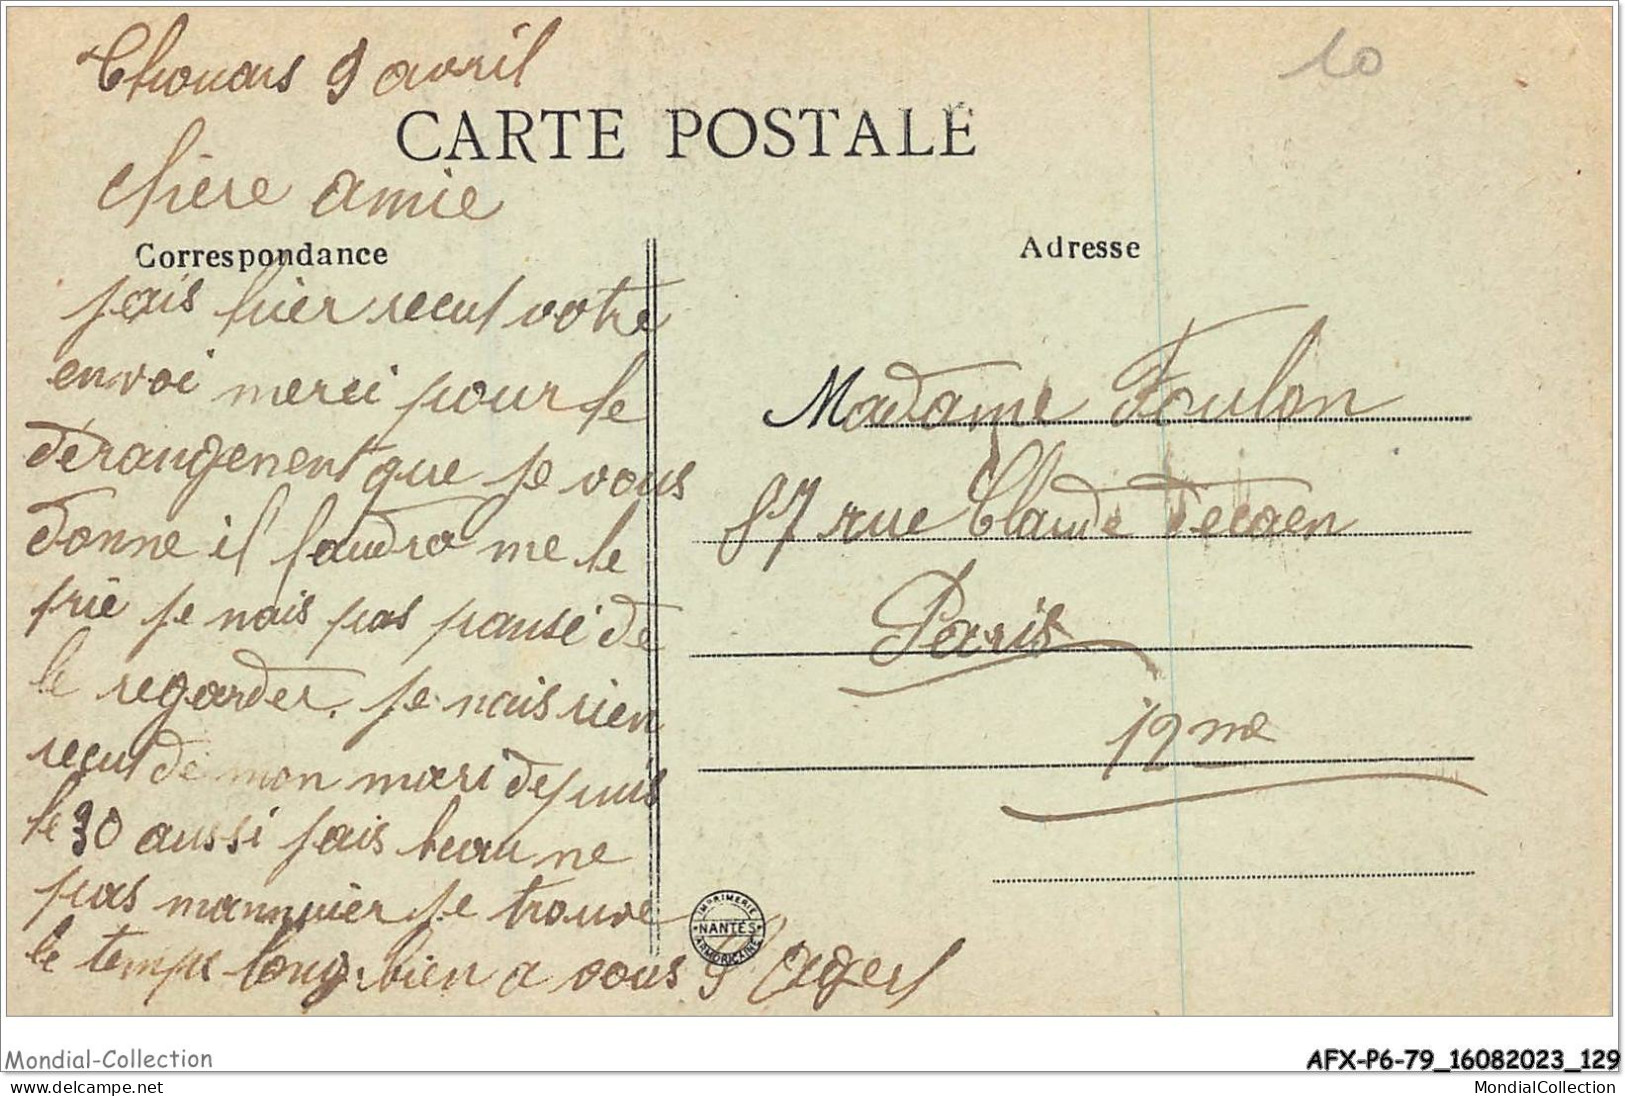 Thouars 9 avril
10
CARTE POSTALE
chère amie
Correspondance
Adresse
jais hier recut votre
envoi merci pour le
dérangement que je vous
donne il faudra me le
prie je nais pas pansé de
le regarder. je nais rien
recut de mon mari depuis
le 30 aussi jais beau ne
pas mannuier je trouve
le temps long. bien a vous
Madame Foulon
87 rue Claude Decaen
Paris
12me
IMPRIMERIE
NANTES
ARMORICAINE
Mondial-Collection
AFX-P6-79_16082023_129
www.delcampe.net
MondialCollection